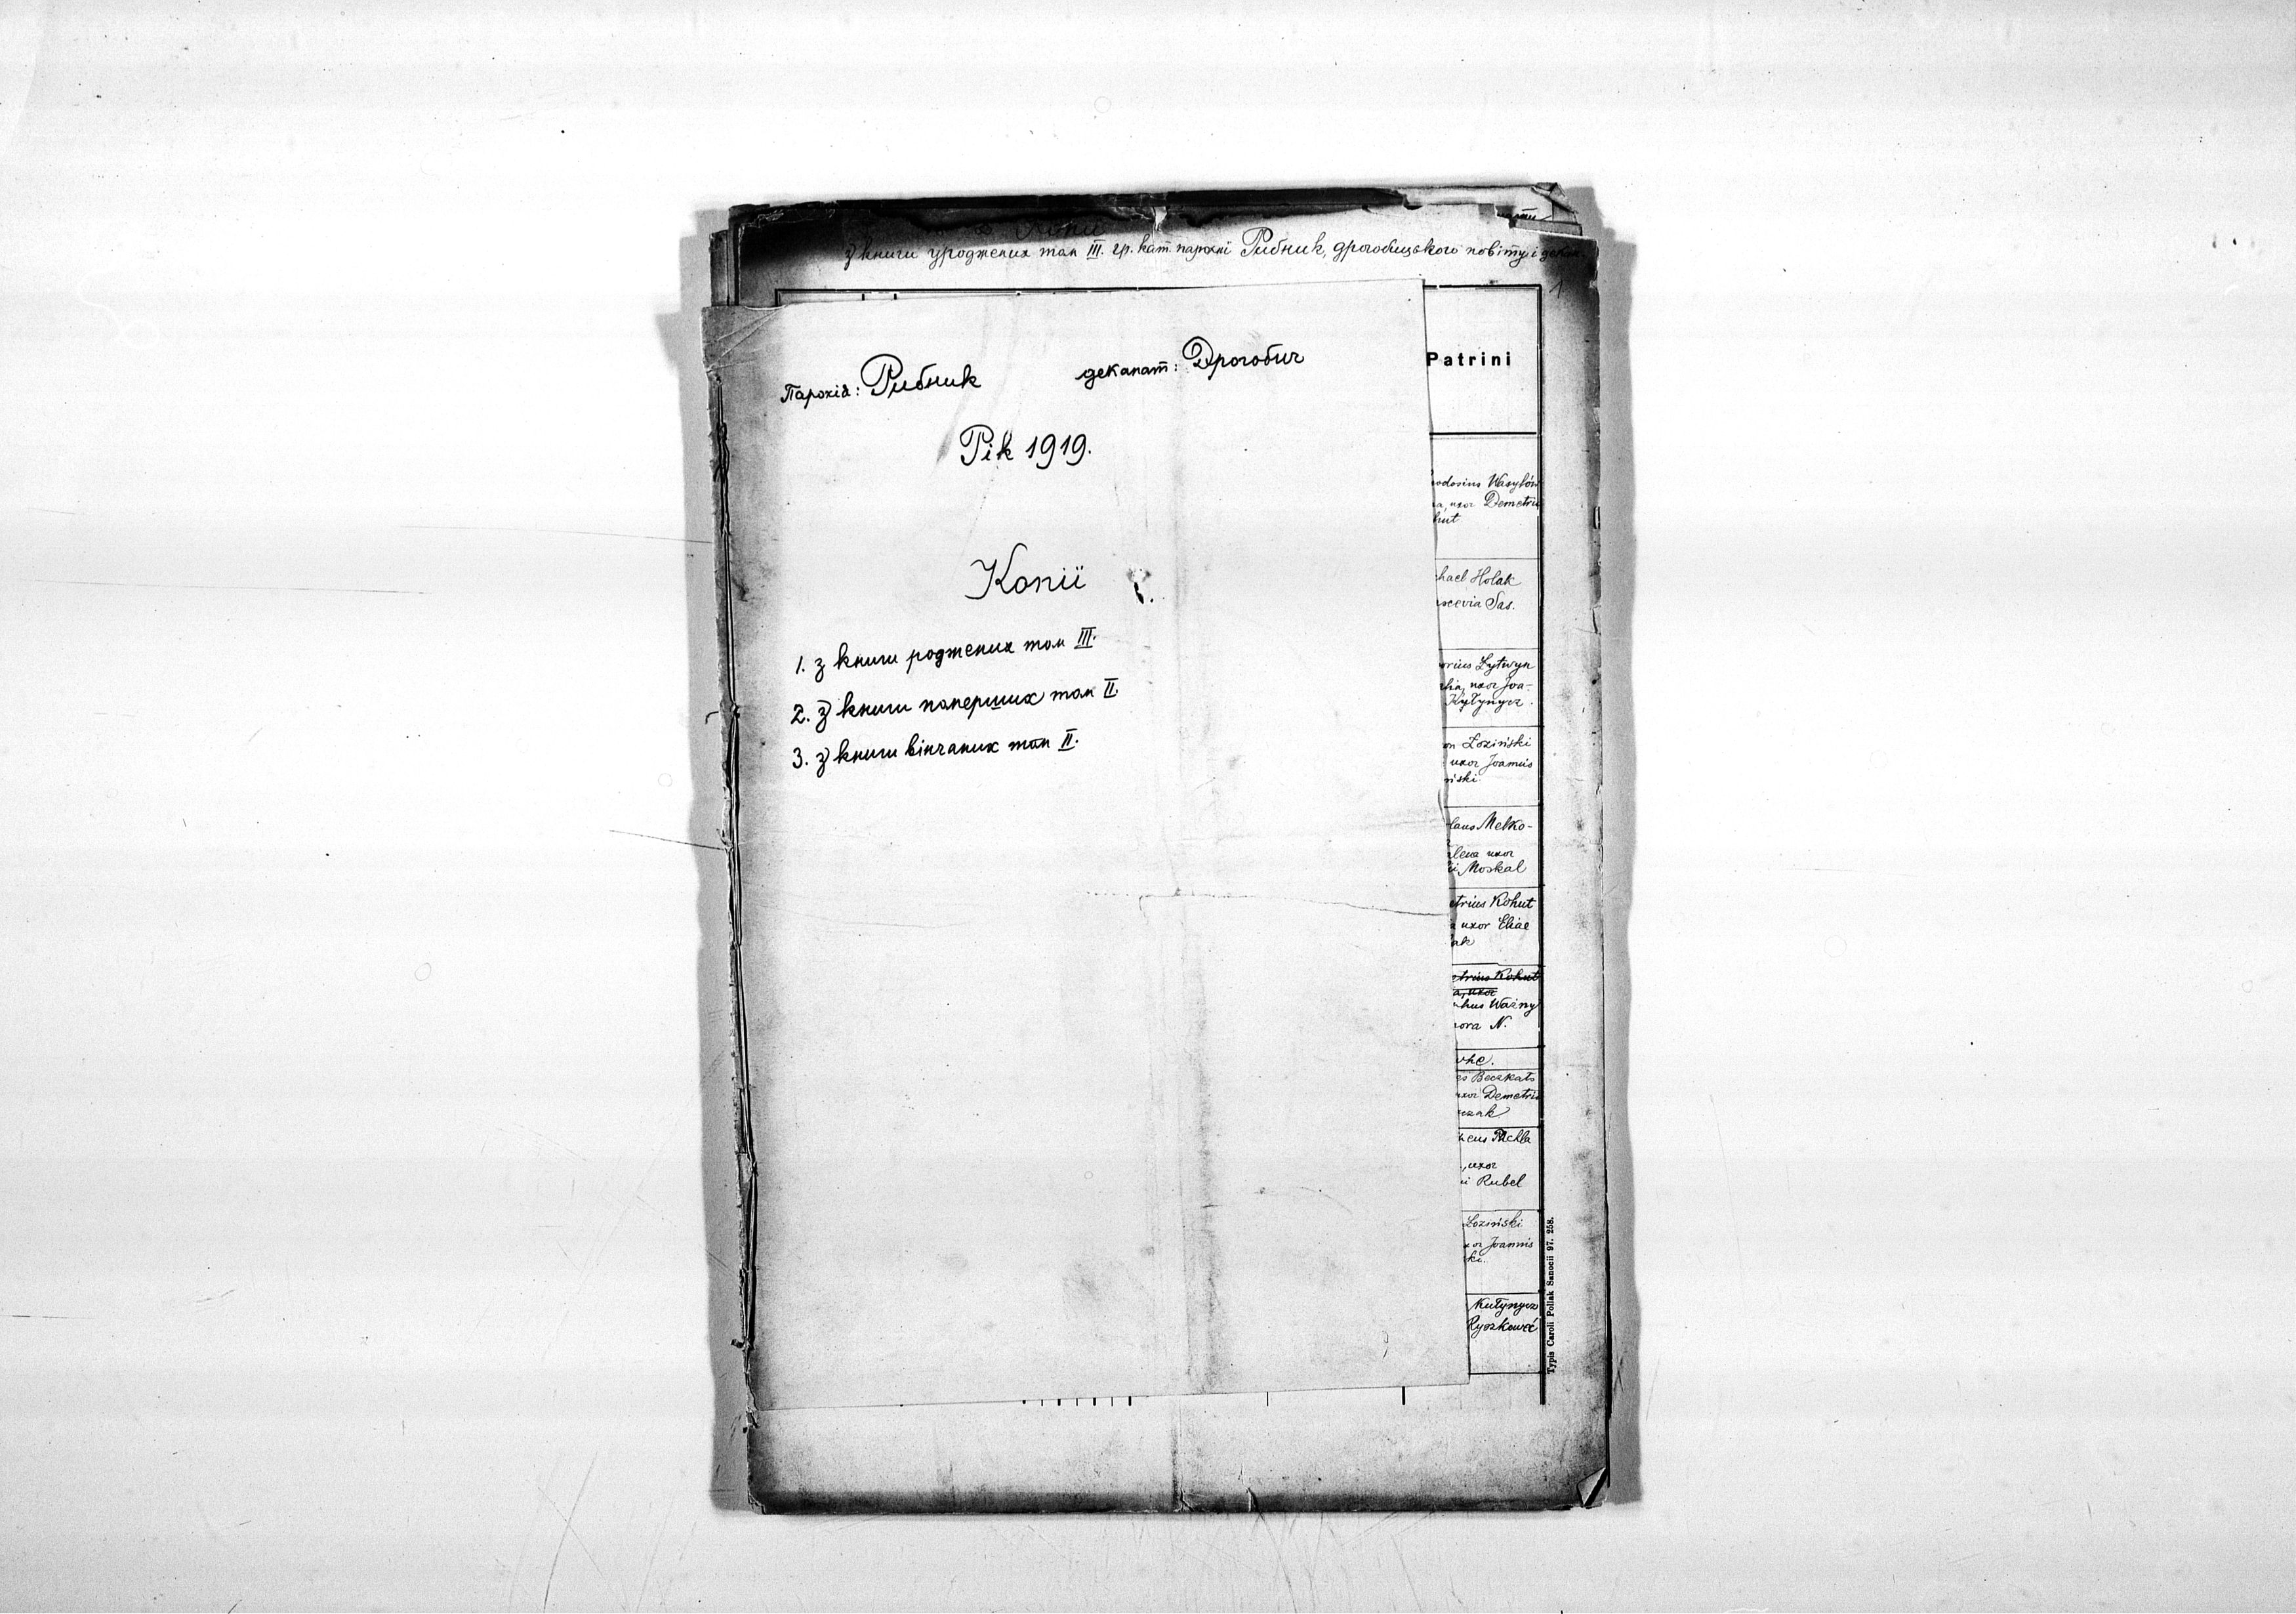 Копії
з книги уроджених том III. гр. кат. парохії Рибник, дрогобицького повіту і декан.
1
Парохія: Рибник деканат: Дрогобич
Рік 1919.
Копії
1. з книги роджених том III.
2. з книги поперших том II.
3. з книги вінчаних том II.
Patrini
odosius Wasylów
a, uxor Demetrii
hut
chael Holak
scevia Sas.
orius Lytwyn
uxor Joa-
Kyłynycz.
on Łoziński
uxor Joannis
ński
laus Melko-
lena uxor
i Moskal
etrius Kohut
a uxor Eliae
ak
etrius Kohut
a, uxor
hus Ważny
ora N.
vhe.
es Beczkało
uxor Demetrii
czak
eus Puchla
, uxor
i Rubel
Łoziński
xor Joannis
ki.
Kutynycz
Ryszkowić
Typis Caroli Pollak Sanocii 97. 258.